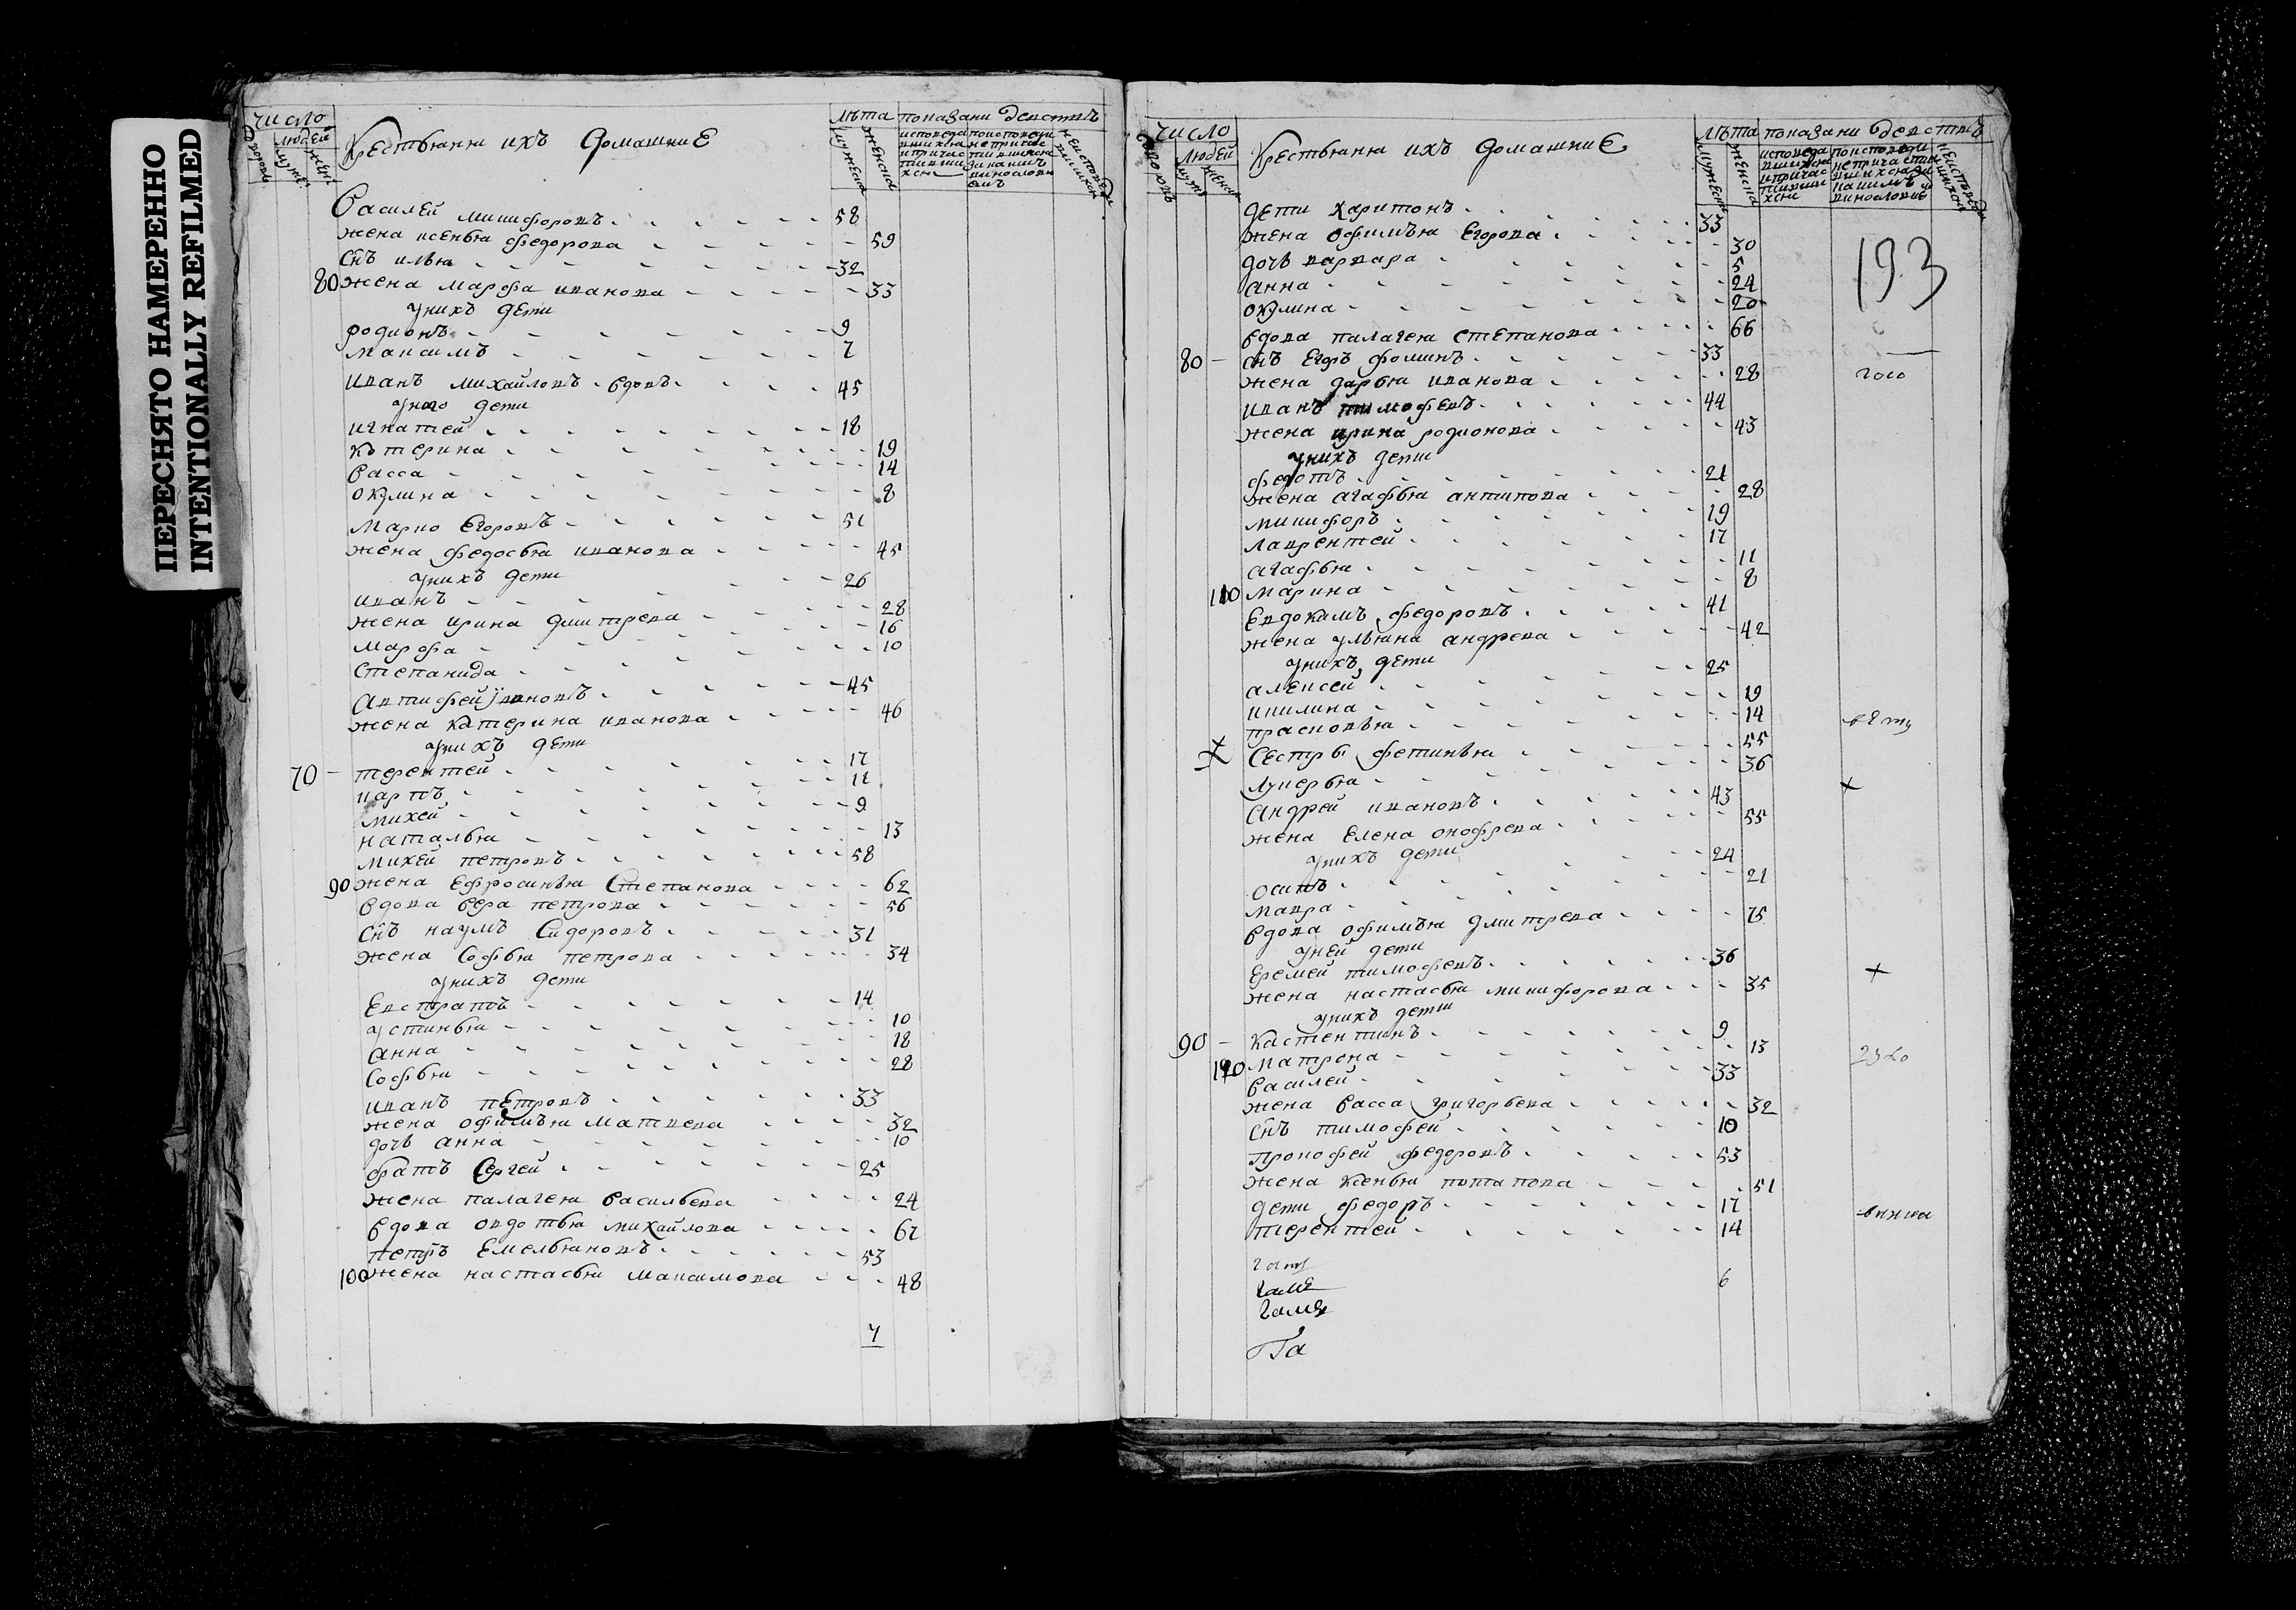 ПЕРЕСНЯТО НАМЕРЕННО
INTENTIONALLY REFILMED
число
людей
Крестьяня ихъ Домашние
лѣта
показани действъ
Василей Никифоровъ 58
жена ксенья федорова 59
снъ илья 32
80 жена марфа иванова 33
унихъ дети
родионъ 9
максимъ 7
иванъ михайловъ вдовъ 45
унего дети
игнатей 18
катерина 19
васса 14
окулина 8
Марко Егоровъ 51
жена федосья иванова 45
унихъ дети
иванъ 26
жена ирина дмитрева 28
марфа 16
степанида 10
Автифей ивановъ 45
жена катерина иванова 46
унихъ дети
70 терентей 17
карпъ 11
михей 9
наталья 13
михей петровъ 58
90 жена Ефросинья Степанова 62
вдова вера петрова 56
снъ наумъ Сидоровъ 31
жена Софья петрова 34
унихъ дети
Евстратъ 14
устинья 10
Анна 18
Софья 28
иванъ петровъ 33
жена офимья Матвева 32
дочь анна 10
братъ Сергей 25
жена палагея васильева 24
вдова овдотья михайлова 67
петръ Емельяновъ 53
100 жена настасья Максимова 48
7
число
людей
Крестьяня ихъ Домашние
лѣта
показани действъ
193
дети харитонъ 33
жена офимья Егорова 30
дочь варвара 5
анна 24
окулина 20
вдова палагея степанова 66
80 снъ Егоръ фоминъ 33
жена дарья иванова 28
иванъ тимофевъ 44
жена ирина родионова 43
унихъ дети
федотъ 21
жена агафья антипова 28
никифоръ 19
лаврентей 17
агафья 11
110 марина 8
Евдокимъ федоровъ 41
жена ульяна андрева 42
унихъ дети
алексей 25
акилина 19
прасковья 14
Сестры фетинья 55
лукерья 36
Андрей ивановъ 43
жена Елена онофрева 55
унихъ дети
осипъ 24
мавра 21
вдова офимья дмитрева 75
уней дети
Еремей тимофевъ 36
жена настасья никифорова 35
унихъ дети
90 Кастентинъ 9
120 матрона 13
василей 33
жена васса григорьева 32
снъ тимофей 10
прокофей федоровъ 53
жена ксенья потапова 51
дети федоръ 17
терентей 14
6